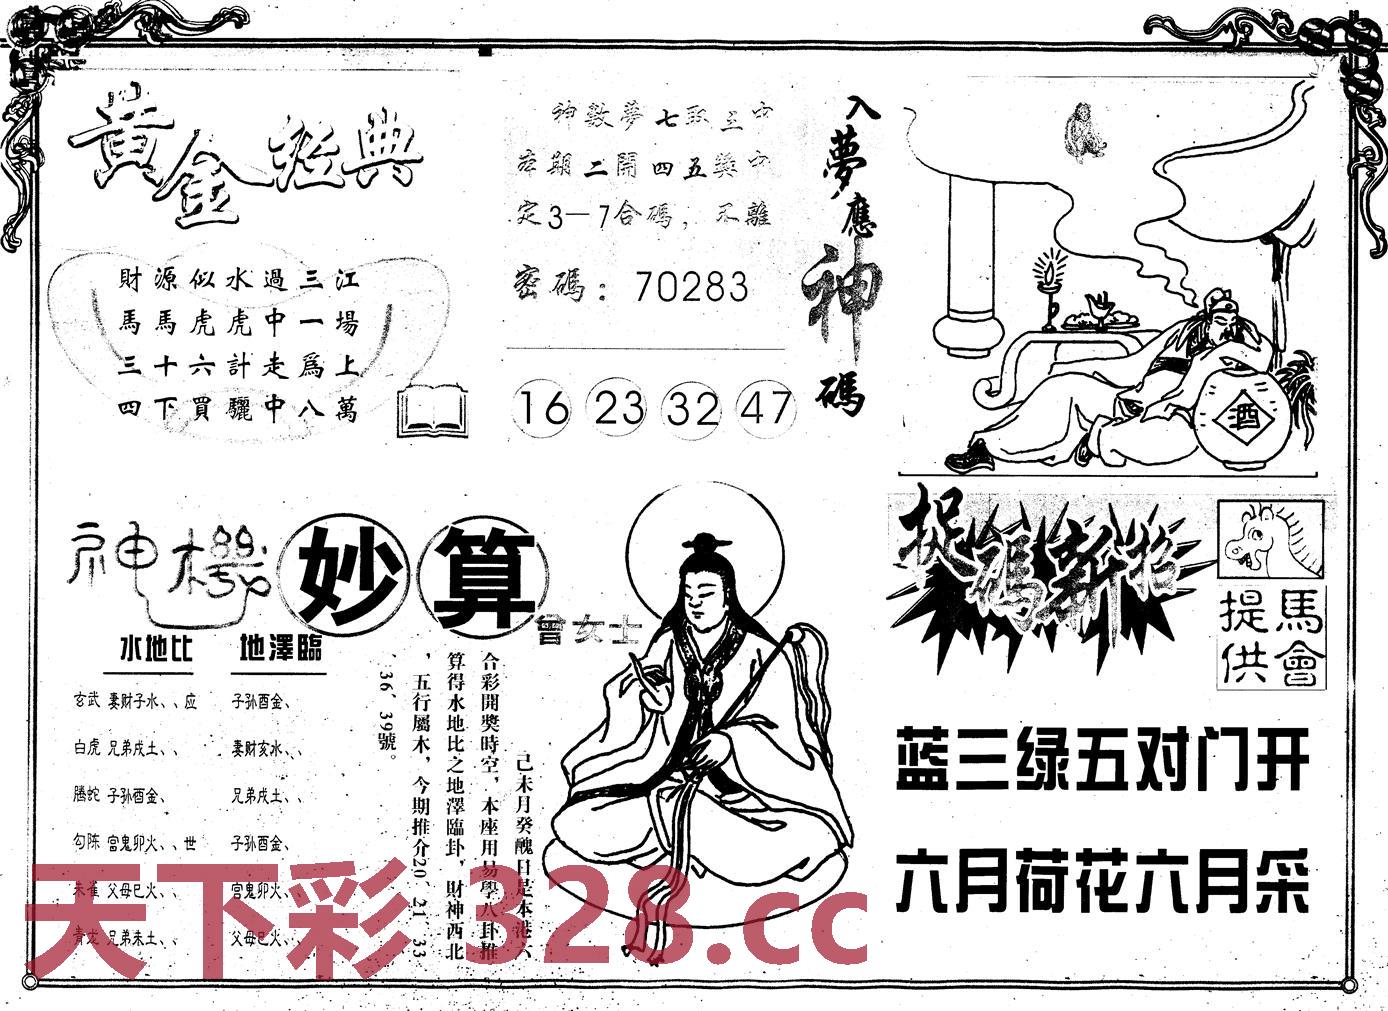 黃金經典
財源似水過三江
馬馬虎虎中一場
三十六計走爲上
四下買驪中八萬
神數夢七取三中
本期二開四五獎中
定3—7合碼，不離
密碼：70283
16 23 32 47
入夢應神碼
酒
神機妙算
曾女士
水地比 地澤臨
玄武 妻财子水、、应 子孙酉金、
白虎 兄弟戌土、、 妻财亥水、、
腾蛇 子孙酉金、 兄弟戌土、、
勾陈 官鬼卯火、、世 子孙酉金、
朱雀 父母巳火、、 官鬼卯火、
青龙 兄弟未土、、 父母巳火、
己未月癸醜日是本港六
合彩開獎時空，本座用易學八卦推
算得水地比之地澤臨卦，財神西北
，五行屬木，今期推介20、21、33
、36、39號。
捉碼新招
馬會提供
蓝三绿五对门开
六月荷花六月采
天下彩 328.cc